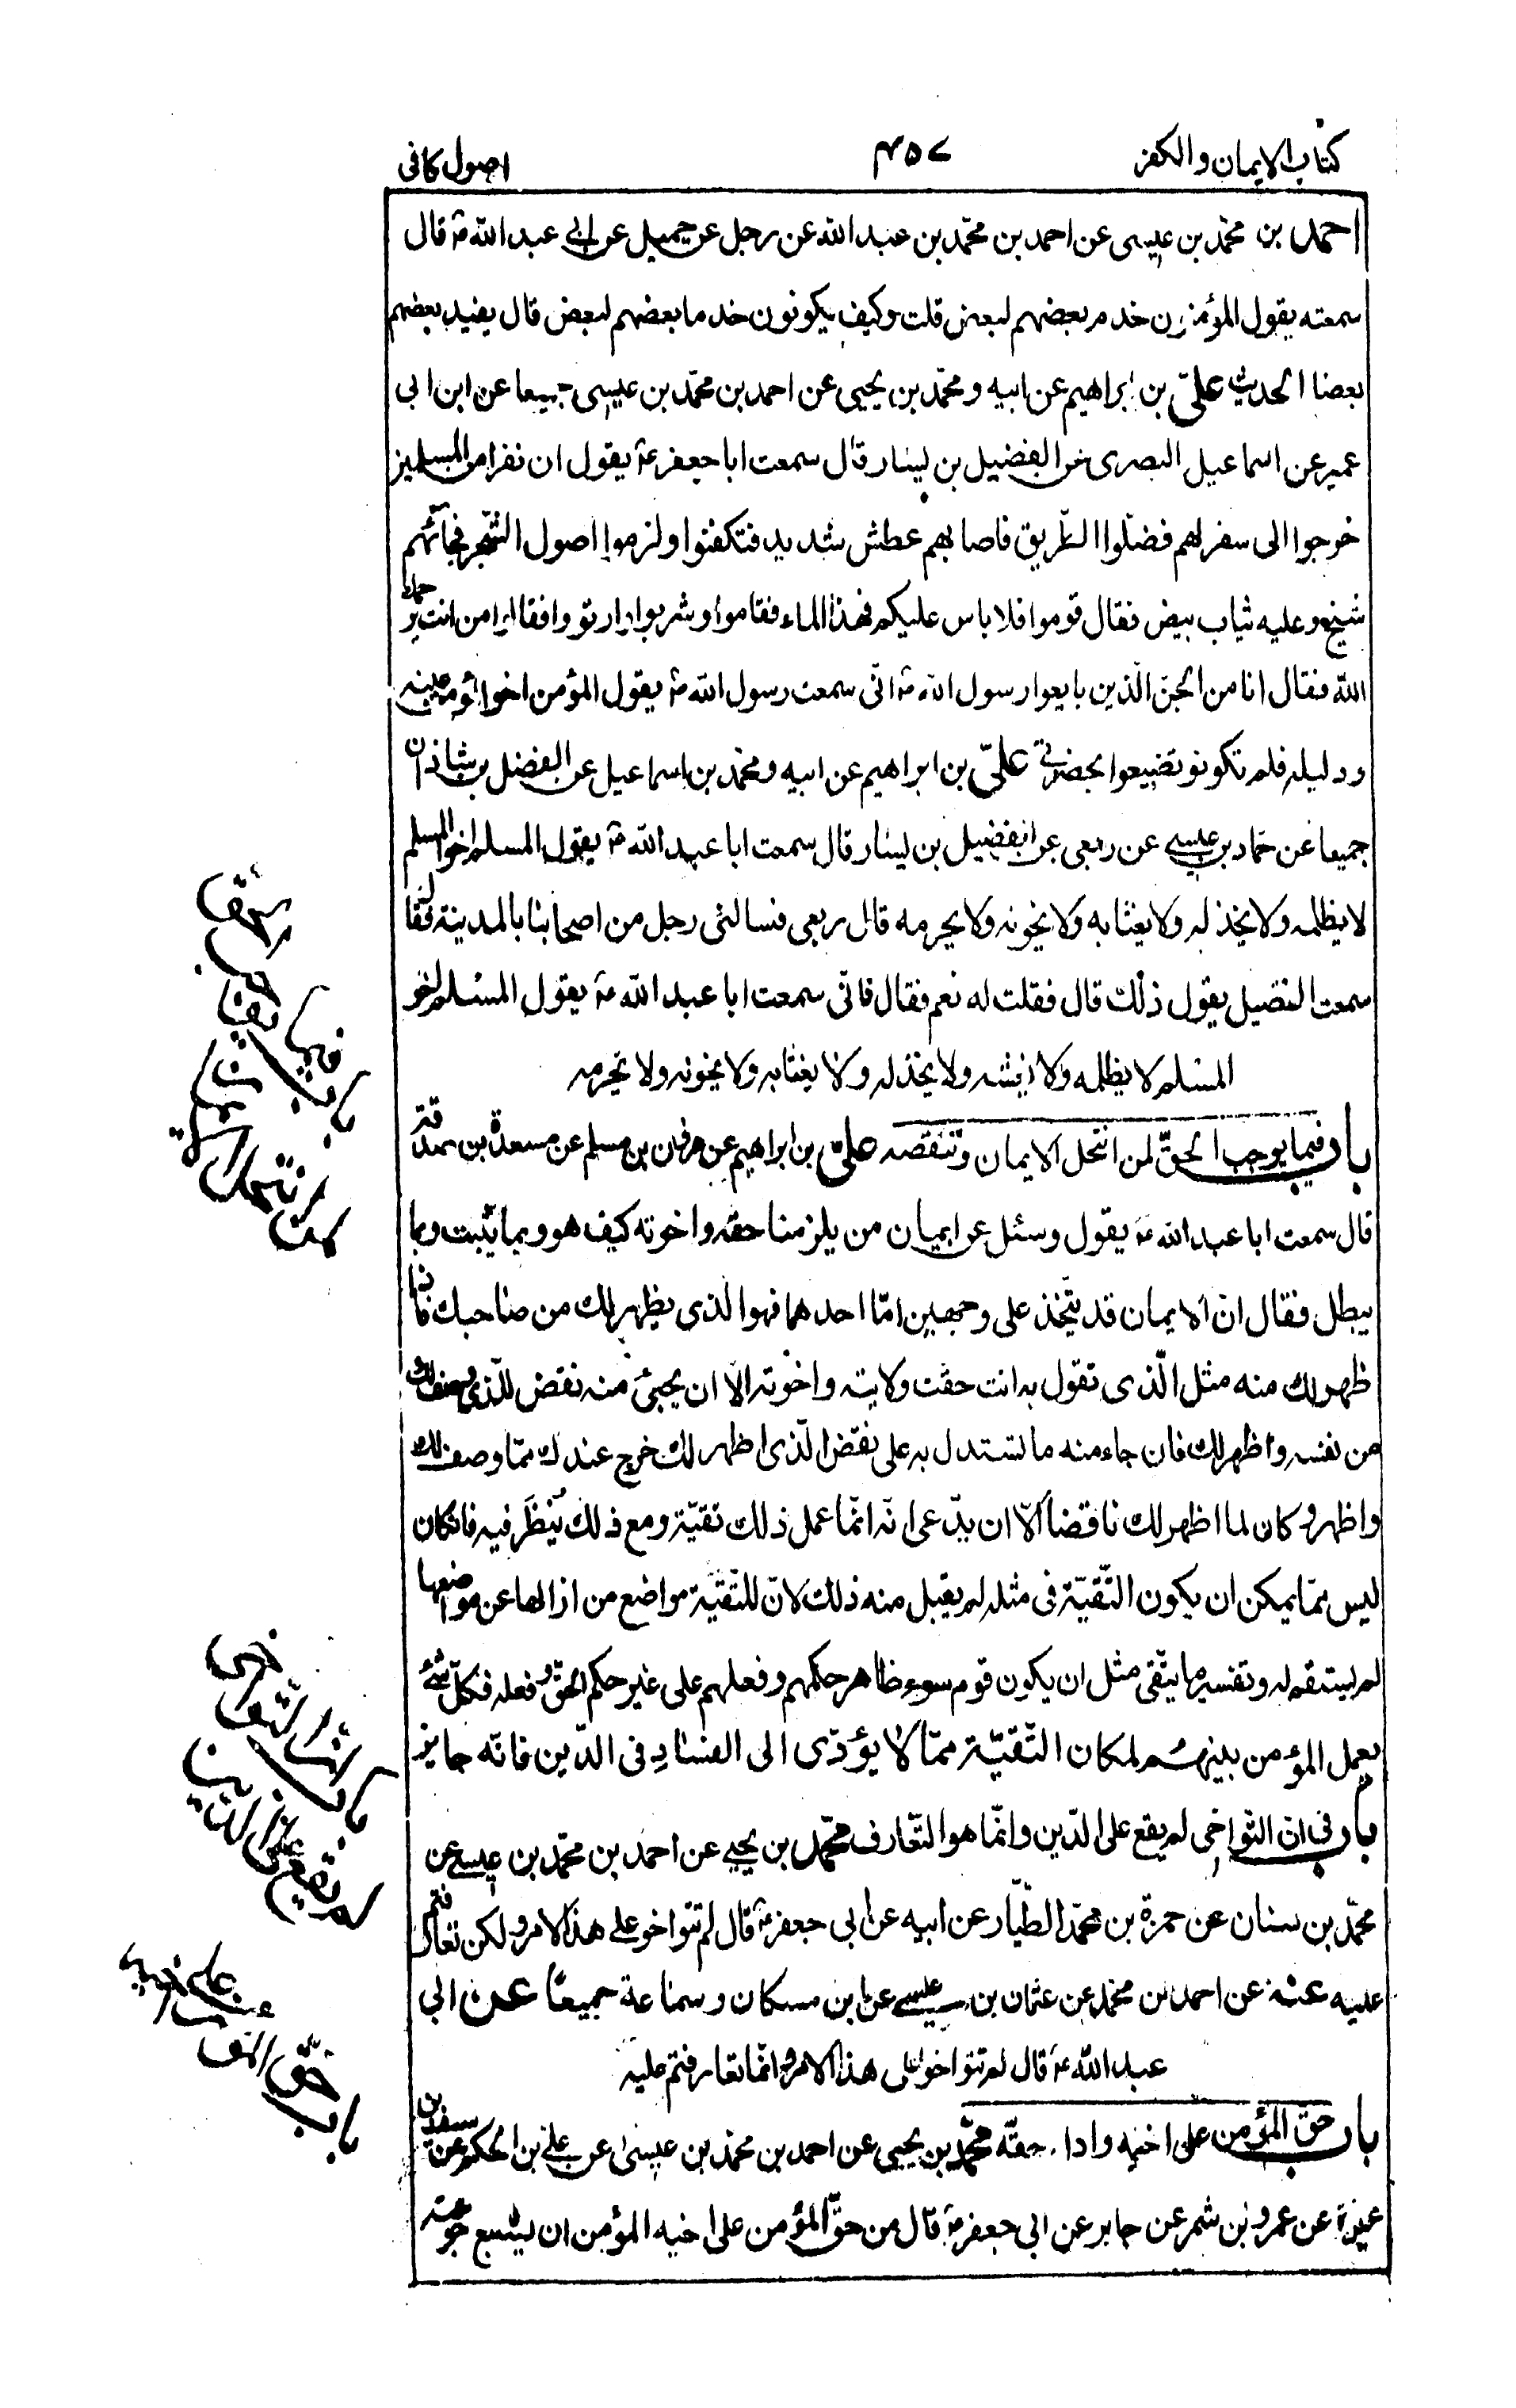 كتاب الايمان والكفر
٤٥٧
اصول كافى
احمد بن محمّد بن عيسى عن احمد بن محمّد بن عبد الله عن رجل عن جميل عن ابى عبد الله ع قال
سمعته يقول المؤمنون خدم بعضهم لبعض قلت وكيف يكونون خدما بعضهم لبعض قال يفيد بعضهم
بعضا الحديث علىّ بن ابراهيم عن ابيه و محمّد بن يحيى عن احمد بن محمّد بن عيسى جميعا عن ابن ابى
عمير عن اسماعيل البصرى عن الفضيل بن يسار قال سمعت ابا جعفر ع يقول ان نفرا من المسلمين
خرجوا الى سفر لهم فضلّوا الطّريق فاصابهم عطش شديد فتكفنوا ولزموا اصول الشّجر فجائهم
شيخ وعليه ثياب بيض فقال قوموا فلا باس عليكم فهذا الماء فقاموا وشربوا وارتووا فقالوا من انت يرحمك
الله فقال انا من الجنّ الّذين بايعوا رسول الله ص انّى سمعت رسول الله ص يقول المؤمن اخو المؤمن عينه
ودليله فلم تكونوا تضيعوا بحضرتى علىّ بن ابراهيم عن ابيه ومحمد بن اسماعيل عن الفضل بن شاذان
جميعا عن حمّاد بن عيسى عن ربعى عن الفضيل بن يسار قال سمعت ابا عبد الله ع يقول المسلم اخو المسلم
لا يظلمه ولا يخذله ولا يغتابه ولا يخونه ولا يحرمه قال ربعى فسالنى رجل من اصحابنا بالمدينة فقال
سمعت الفضيل يقول ذلك قال فقلت له نعم فقال فانّى سمعت ابا عبد الله ع يقول المسلم اخو
المسلم لا يظلمه ولا يغشه ولا يخذله ولا يغتابه ولا يخونه ولا يحرمه
باب فيما يوجب الحقّ لمن انتحل الايمان وتنقضه علىّ بن ابراهيم عن هرون بن مسلم عن مسعدة بن صدقة
قال سمعت ابا عبد الله ع يقول وسئل عن ايمان من يلزمنا حقه واخوته كيف هو وبما يثبت وبما
يبطل فقال انّ الايمان قد يتّخذ على وجهين امّا احدهما فهو الذى يظهر لك من صاحبك فاذا
ظهر لك منه مثل الّذى تقول به انت حقت ولايته واخوته الّا ان يجيئ منه نقض للّذى وصف لك
من نفسه واظهر لك فان جاء منه ما تستدل به على نقض الّذى اظهر لك خرج عندك ممّا وصف لك
واظهر وكان لما اظهر لك ناقضا الّا ان يدّعى انّه انّما عمل ذلك تقيّة ومع ذلك يُنظَر فيه فان كان
ليس ممّا يمكن ان يكون التّقيّة فى مثله لم يقبل منه ذلك لانّ للتّقيّة مواضع من ازالها عن مواضعها
لم يستقم له وتفسير ما يتّقى مثل ان يكون قوم سوء ظاهر حكمهم وفعلهم على غير حكم الحقّ وفعله فكلّ شئ
يعمل المؤمن بينهم لمكان التّقيّة ممّا لا يؤدّى الى الفساد فى الدّين فانّه جايز
باب فى انّ التّواخى لم يقع على الدّين وانّما هو التّعارف محمّد بن يحيى عن احمد بن محمّد بن عيسى عن
محمّد بن سنان عن حمزة بن محمّد الطّيّار عن ابيه عن ابى جعفر ع قال لم تتواخوا على هذا الامر ولكن تعارفتم
عليه عنه عن احمد بن محمّد عن عثمان بن عيسى عن ابن مسكان وسماعة جميعًا عن ابى
عبد الله ع قال لم تتواخوا على هذا الامر وانّما تعارفتم عليه
باب حقّ المؤمن على اخيه واداء حقّه محمّد بن يحيى عن احمد بن محمّد بن عيسى عن علىّ بن الحكم عن سيف بن
عميرة عن عمرو بن شمر عن جابر عن ابى جعفر ع قال من حقّ المؤمن على اخيه المؤمن ان يشبع جوعته
باب فيما
لمن انتحل
باب انّ التّواخى
لم يقع على الدّين
باب حقّ المؤمن
على اخيه